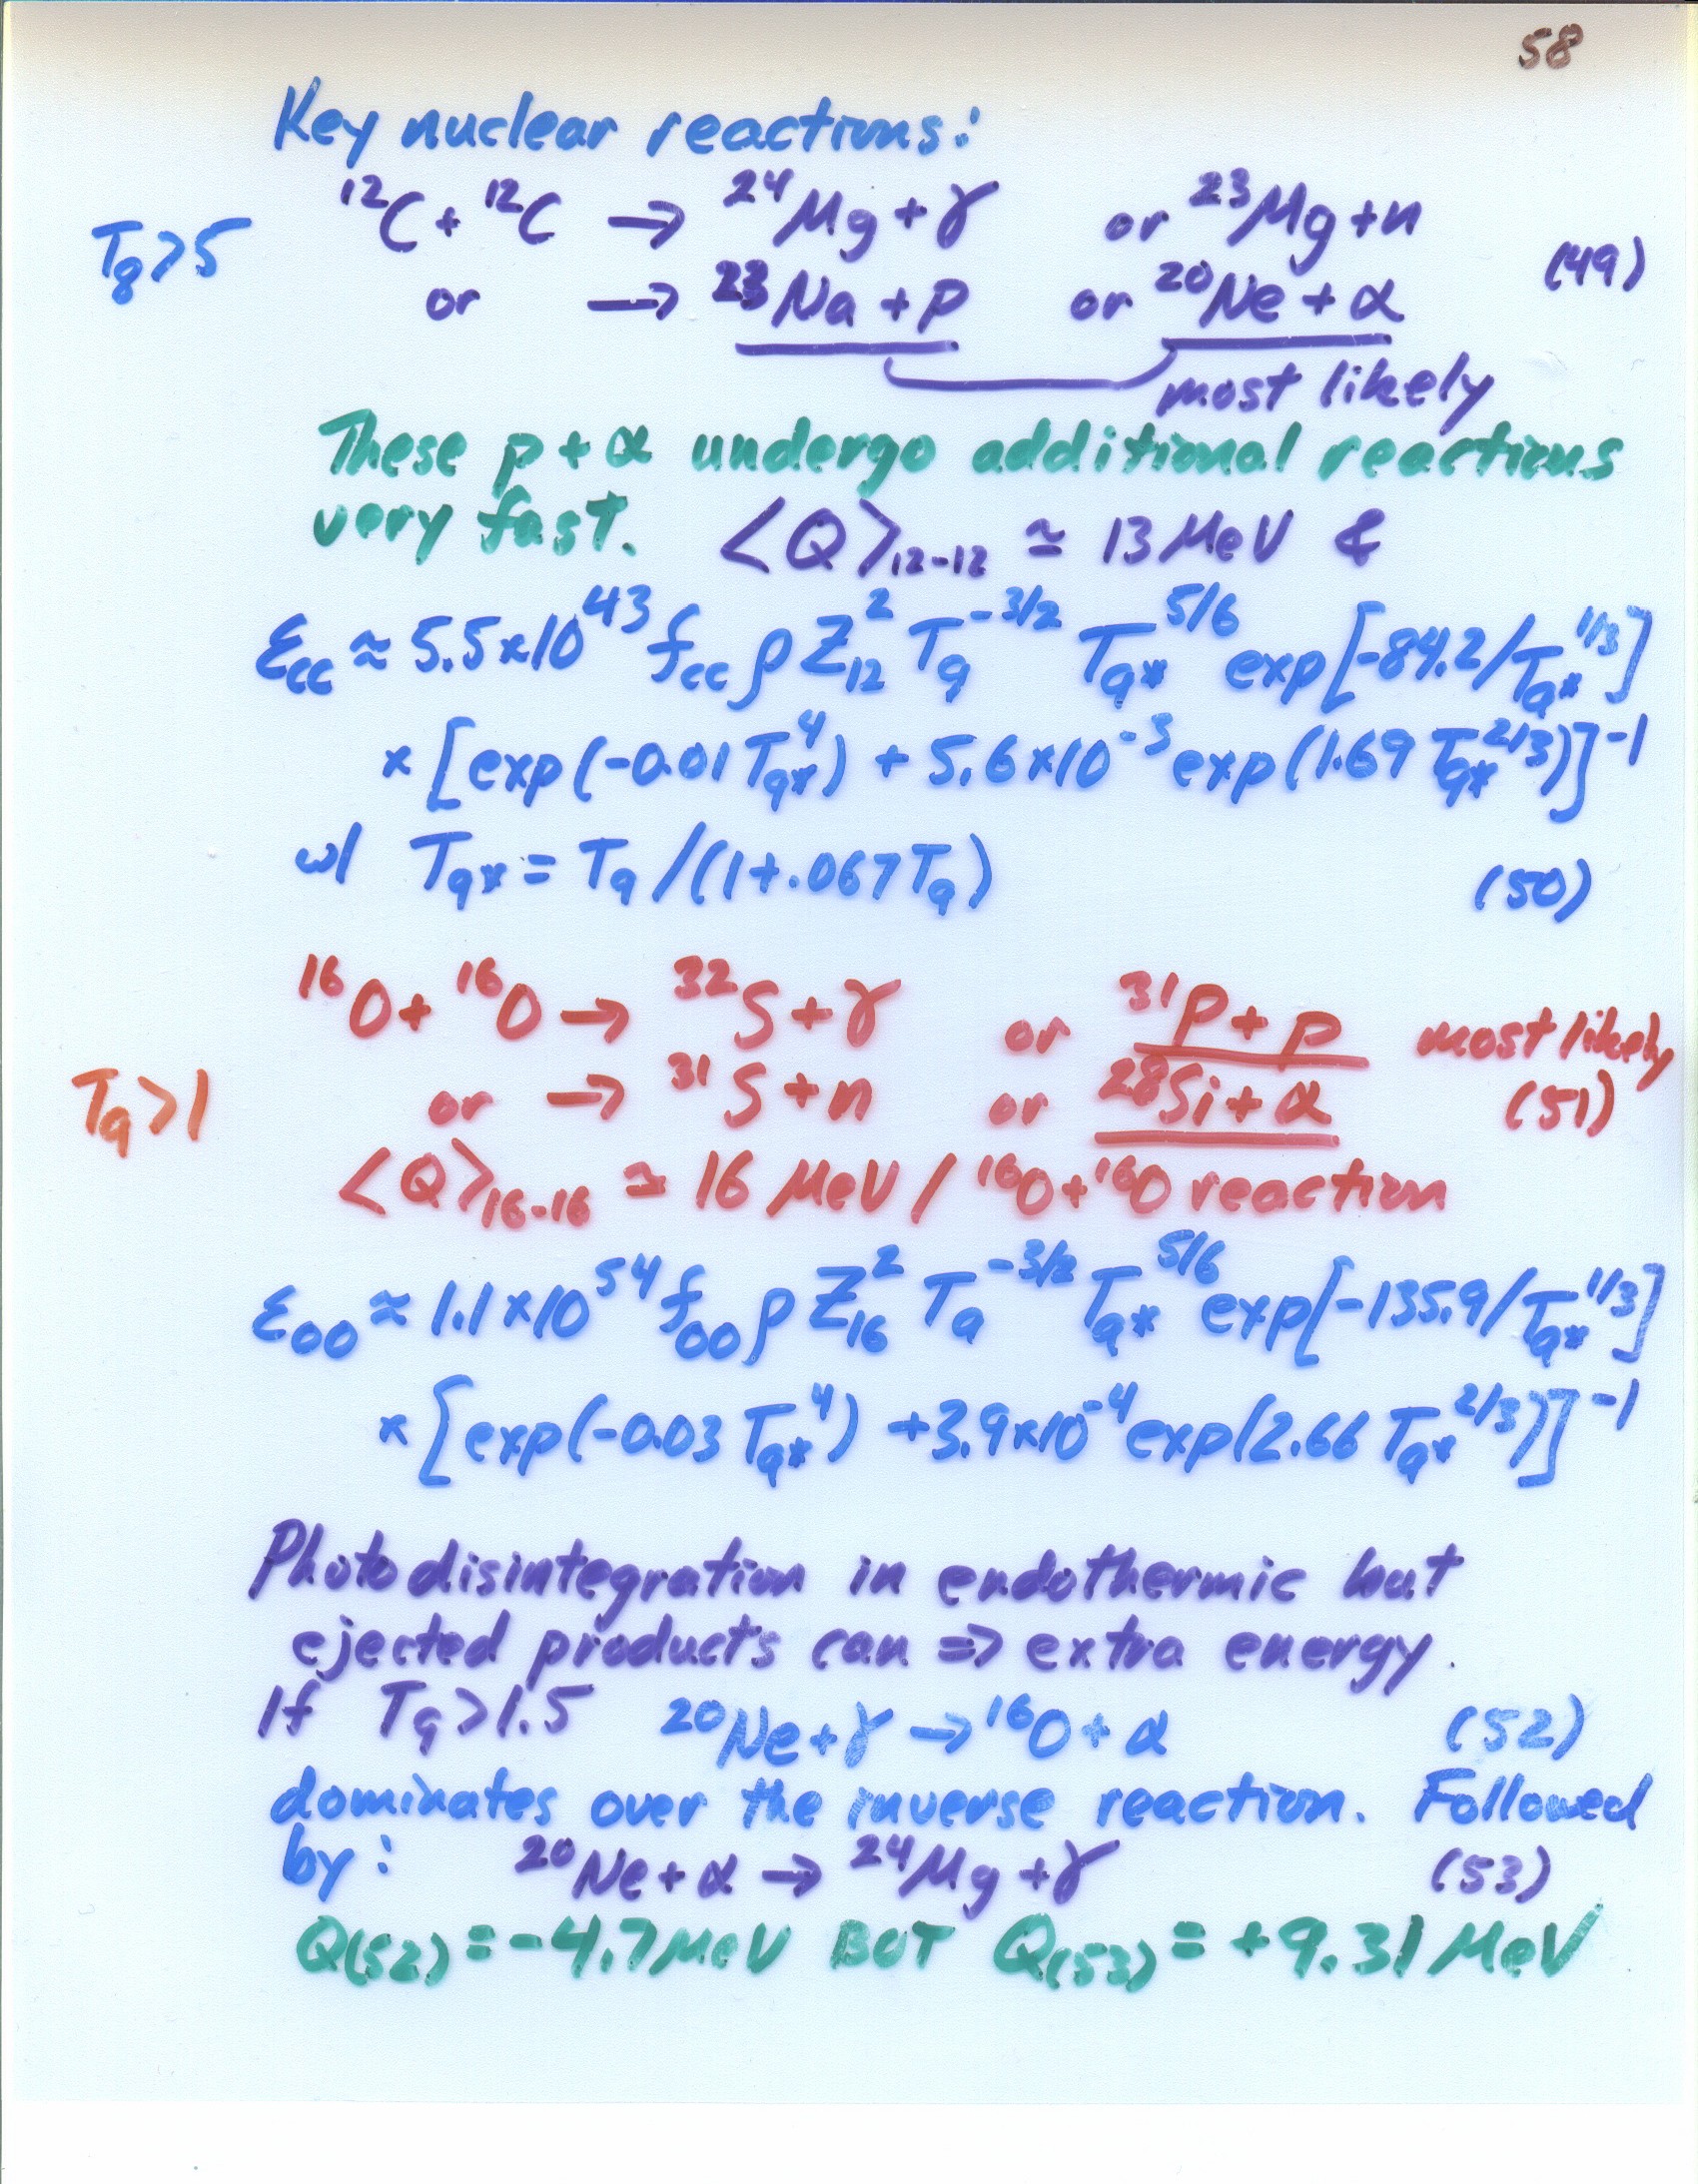 58
Key nuclear reactions:
T₈>5 ¹²C + ¹²C → ²⁴Mg + γ or ²³Mg + n (49)
or → ²³Na + p or ²⁰Ne + α
most likely
These p + α undergo additional reactions
very fast. <Q>₁₂₋₁₂ ≃ 13 MeV &
ε_cc ≈ 5.5×10⁴³ f_cc ρ Z₁₂² T₉^(-3/2) T₉*^(5/6) exp[-84.2/T₉*^(1/3)]
× [exp(-0.01 T₉*⁴) + 5.6×10⁻³ exp(1.69 T₉*^(2/3))]⁻¹
w/ T₉* = T₉ /(1+.067T₉) (50)
¹⁶O + ¹⁶O → ³²S + γ or ³¹P + p most likely
T₉>1 or → ³¹S + n or ²⁸Si + α (51)
<Q>₁₆₋₁₆ ≃ 16 MeV / ¹⁶O+¹⁶O reaction
ε_OO ≈ 1.1×10⁵⁴ f_OO ρ Z₁₆² T₉^(-3/2) T₉*^(5/6) exp[-135.9/T₉*^(1/3)]
× [exp(-0.03 T₉*⁴) + 3.9×10⁻⁴ exp(2.66 T₉*^(2/3))]⁻¹
Photodisintegration in endothermic but
ejected products can ⇒ extra energy.
If T₉>1.5 ²⁰Ne + γ → ¹⁶O + α (52)
dominates over the inverse reaction. Followed
by: ²⁰Ne + α → ²⁴Mg + γ (53)
Q₍₅₂₎ = -4.7 MeV BUT Q₍₅₃₎ = +9.31 MeV